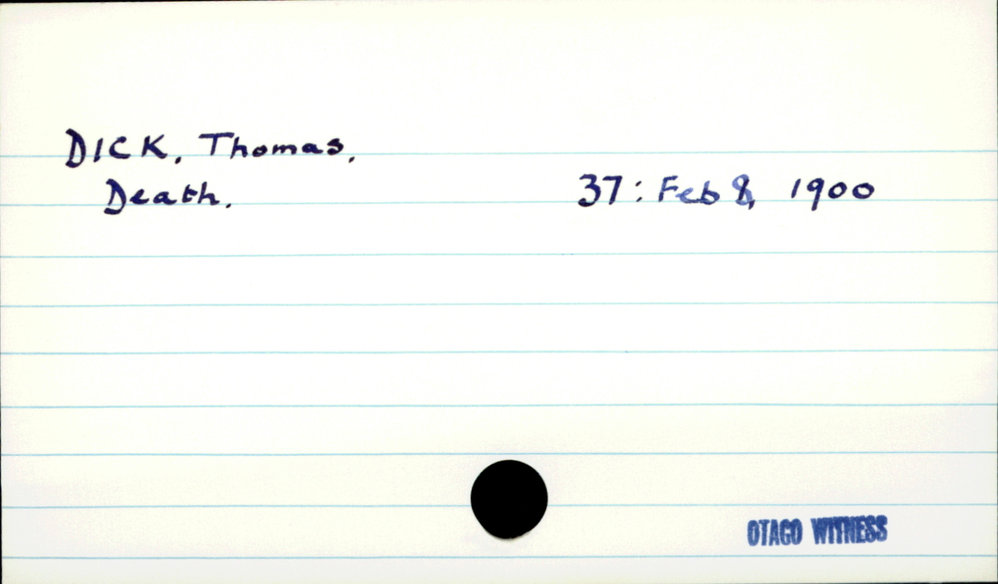 DICK, Thomas.
Death. 37: Feb 8, 1900
OTAGO WITNESS